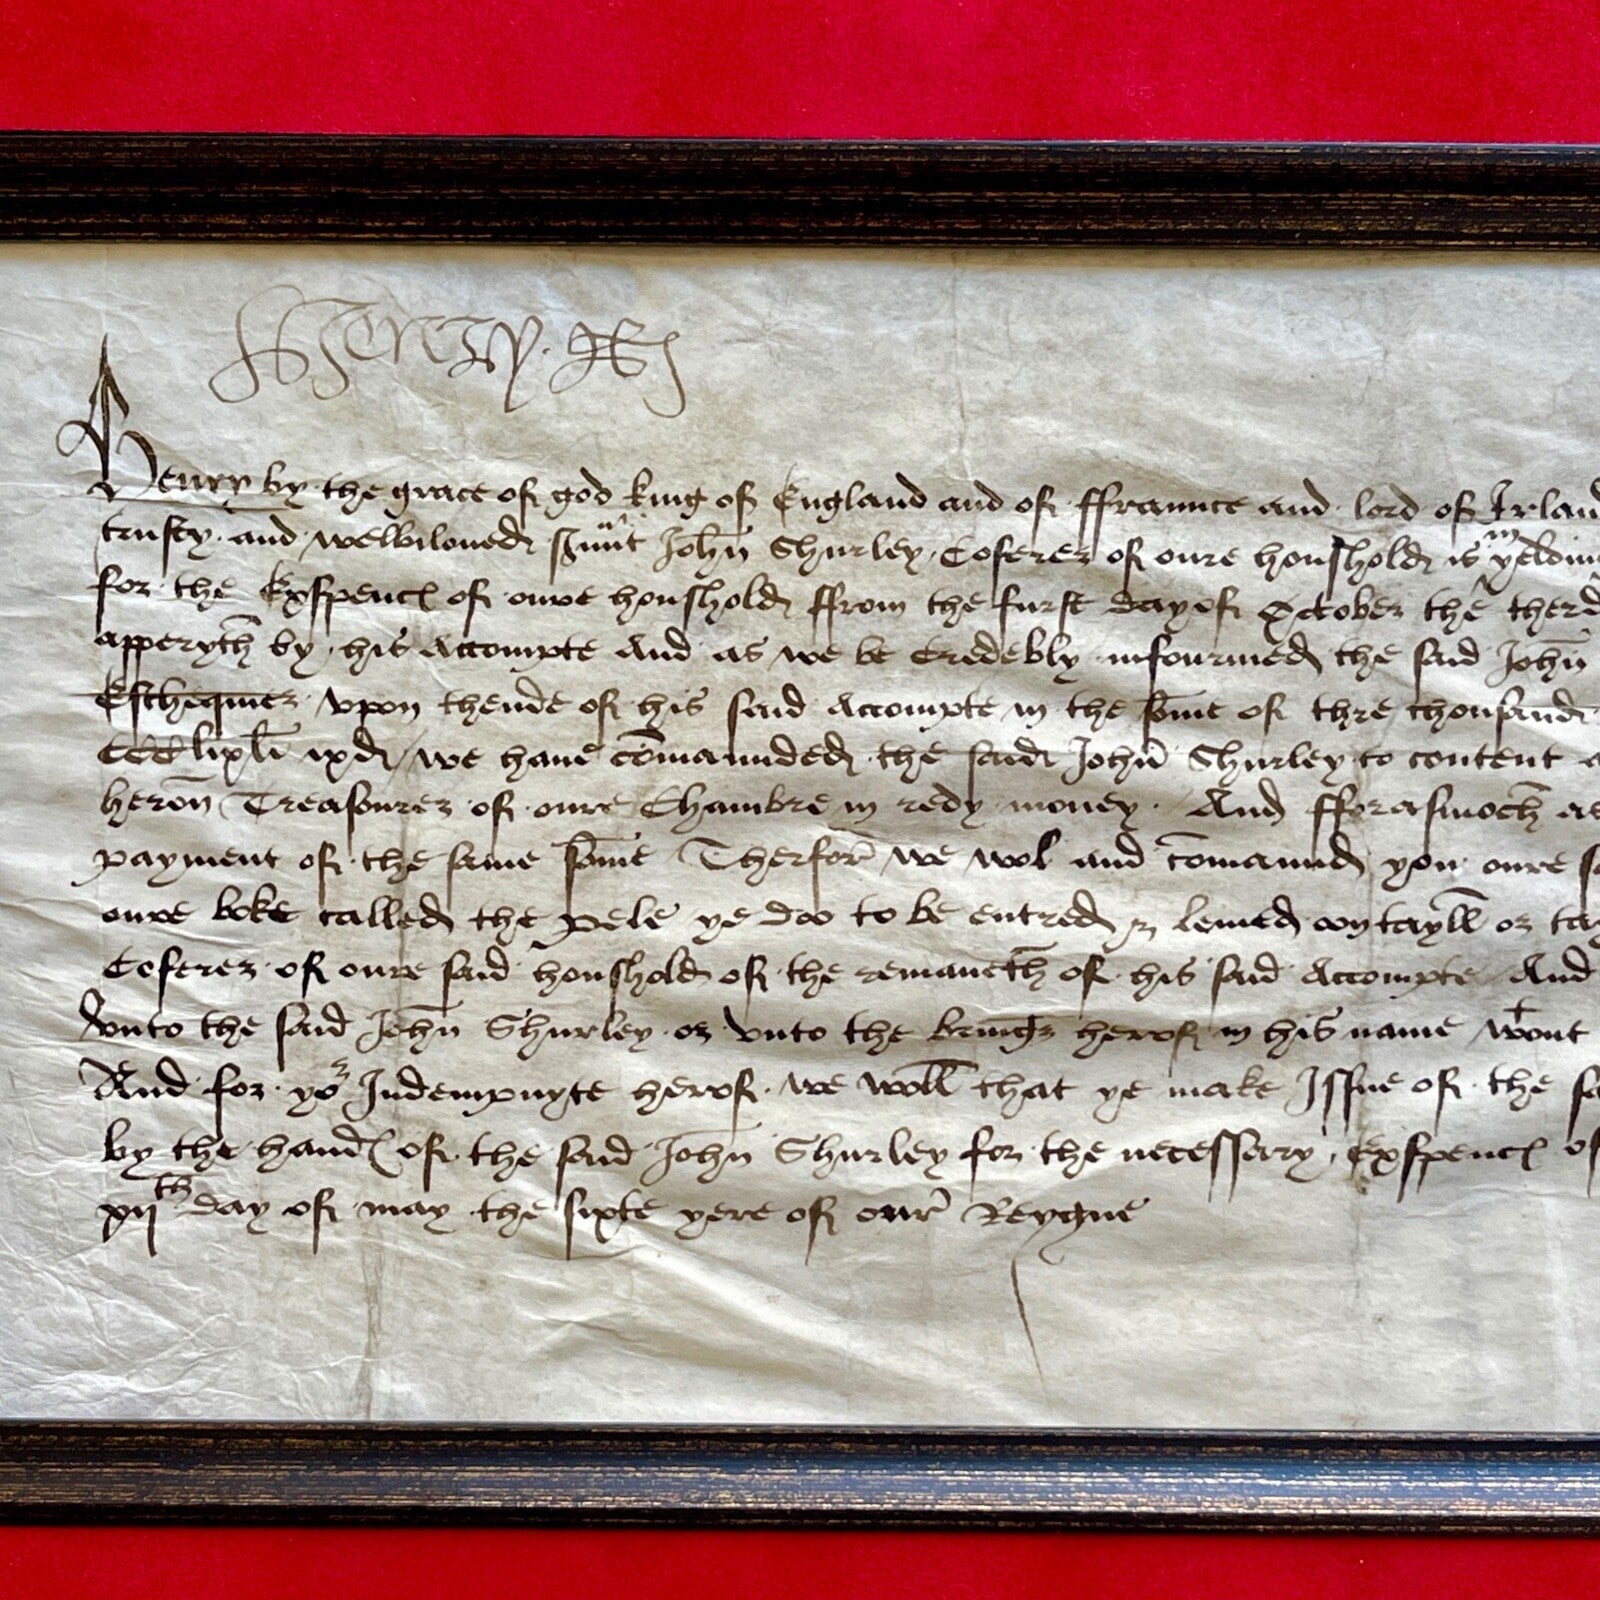 Henry R
Henry by the grace of god king of England and of ffraunce and lord of Irlan
trusty and welbiloued John Shurley Coferer of oure houshold is yeldin
for the Expenc of oure houshold ffrom the furst day of October the therd
apperyth by his Accompte And as we be Credebly infourmed the said John
Eschequier vpon thende of his said Accompte in the some of thre thousand
CCClixli ixd we haue comaunded the said John Shurley to content a
heron Treasourer of oure Chambre in redy money. And fforasmoch as
payment of the same some Therfor we wol and comaund you oure s
oure boke called the pele ye doo to be entred & leuied ony tayll or ta
Coferer of oure said houshold of the remaneth of his said Accompte And
vnto the said John Shurley or vnto the bringer herof in his name wout
And for yor Indempnyte herof we woll that ye make Issue of the sa
by the hand of the said John Shurley for the necessary Expenc of
xijth day of may the sixte yere of our Reygne